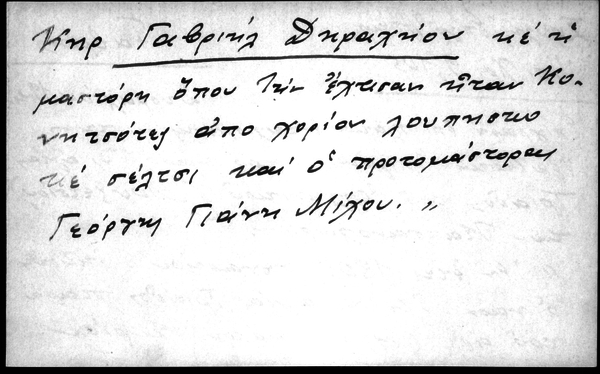 Κηρ Γαβριήλ Δηραχήου κέ ἡ
μαστόρη ὅπου τὴν ἔχτισαν ἦταν Κο-
νητσότες ἀπο χορίον λουπησκο
κέ σέλτσι καί ὁ προτομάστορας
Γεόργης Γιάνη Μίχου. "